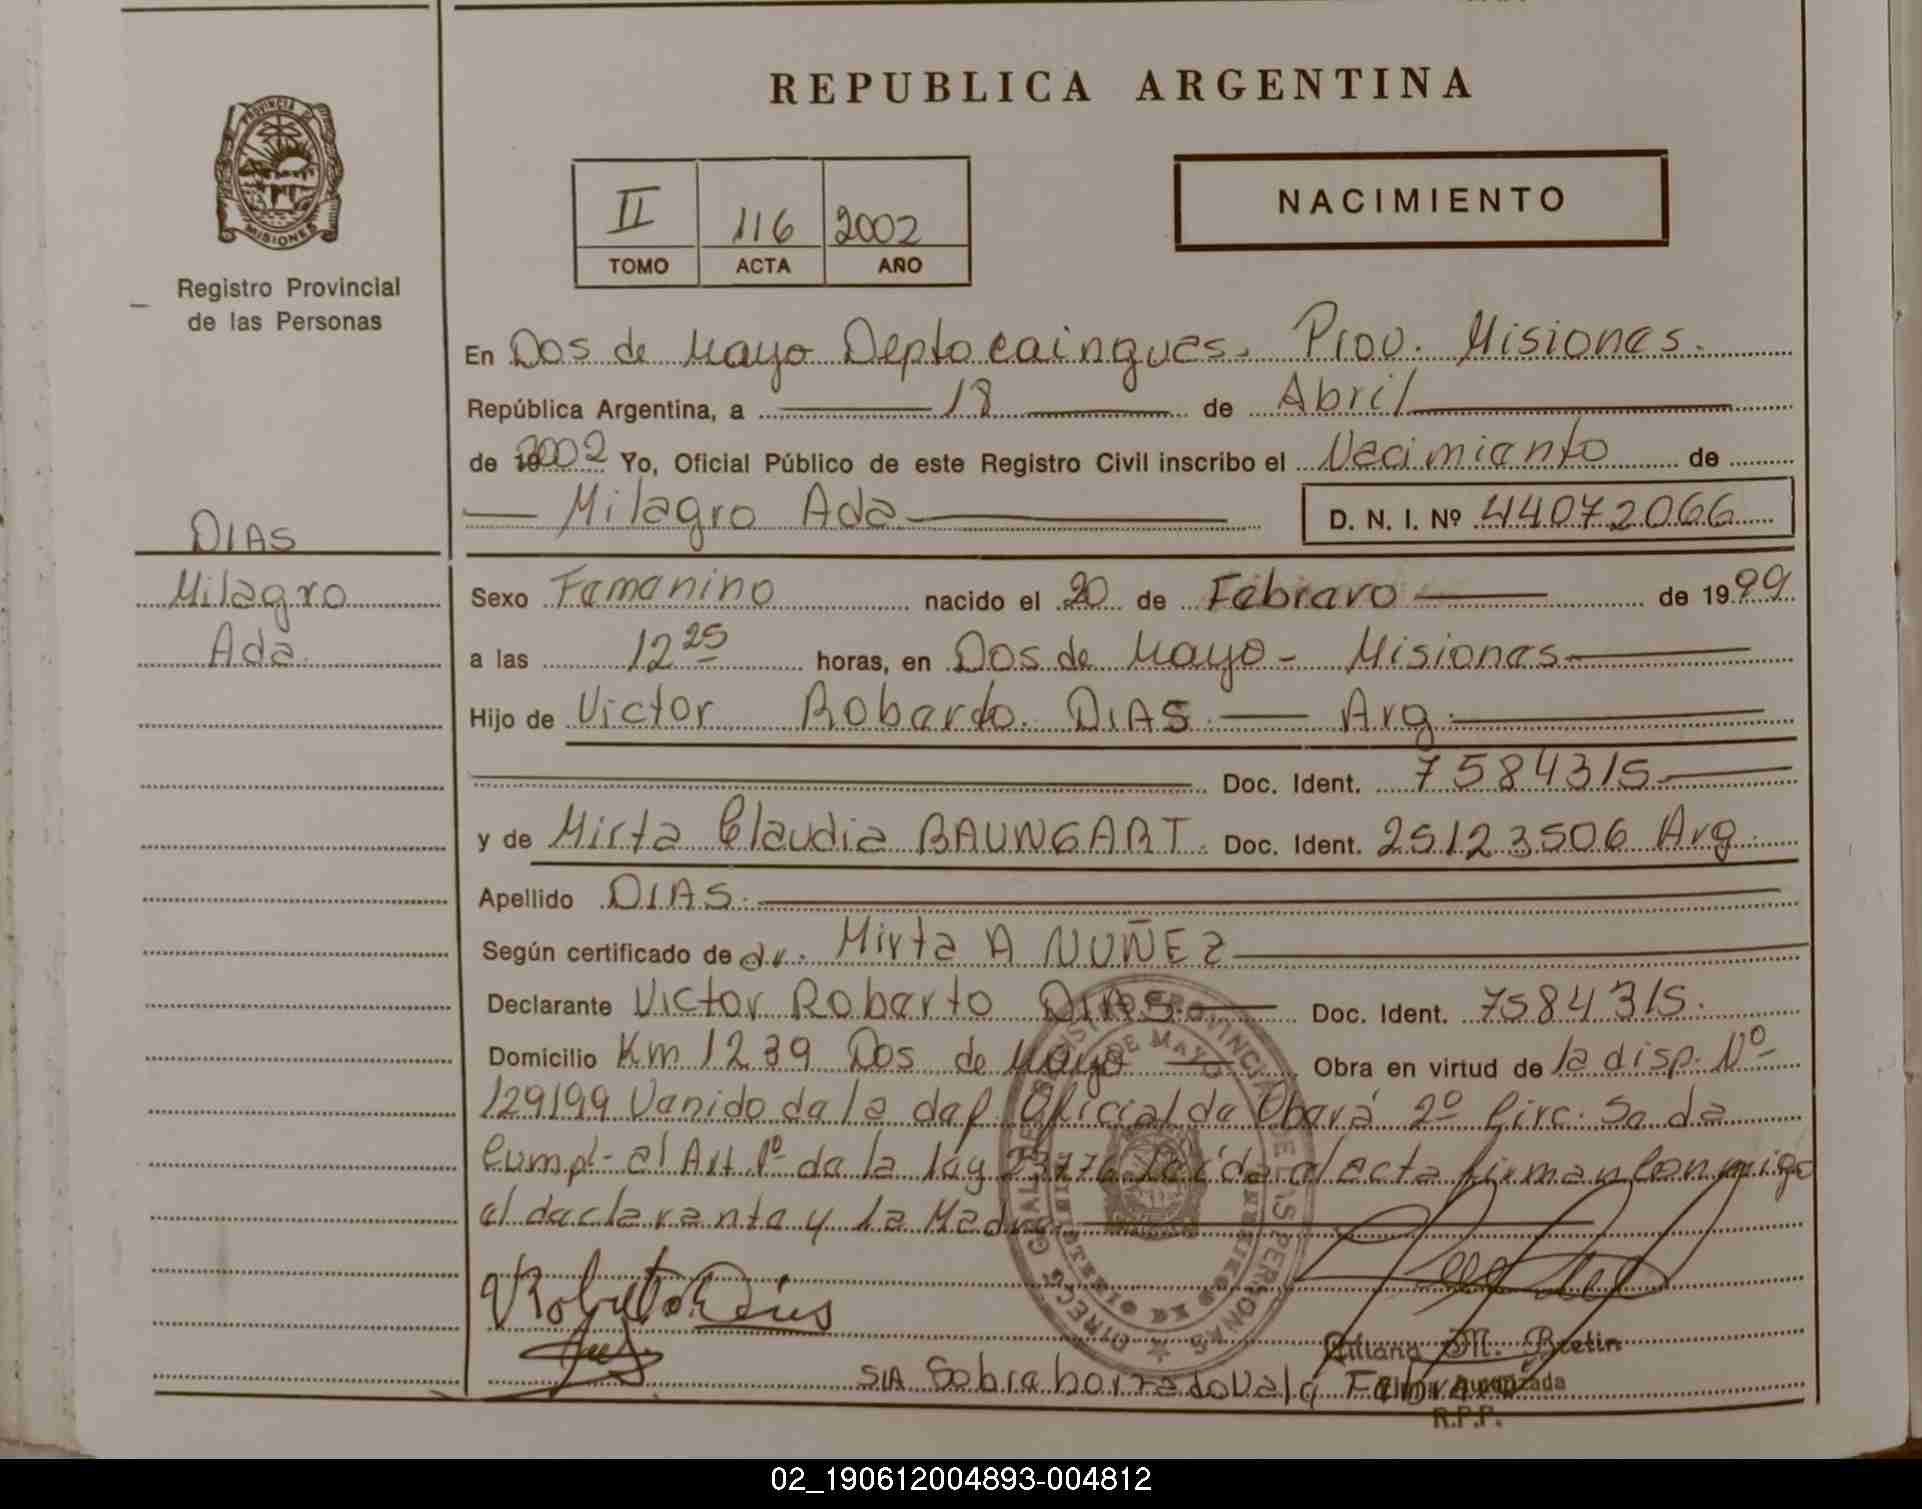 REPUBLICA ARGENTINA
PROVINCIA DE
MISIONES
Registro Provincial
de las Personas
II 116 2002
TOMO ACTA AÑO
NACIMIENTO
En Dos de Mayo Depto Cainguas. Prov. Misiones.
República Argentina, a 18 de Abril
de 2002 Yo, Oficial Público de este Registro Civil inscribo el Nacimiento de
Milagro Ada D. N. I. Nº 44072066
DIAS
Milagro
Ada.
Sexo Femenino nacido el 20 de Febrero de 1999
a las 12 25 horas, en Dos de Mayo - Misiones
Hijo de Victor Roberto. DIAS. Arg.
Doc. Ident. 7584315
y de Mirta Claudia BAUNGART. Doc. Ident. 25123506 Arg.
Apellido DIAS.
Según certificado de dr. Mirta A NUÑEZ
Declarante Victor Roberto DIAS. Doc. Ident. 7584315.
Domicilio Km 1239 Dos de Mayo Obra en virtud de la disp. Nº
129199 Venido de la del Oficial de Oberá 2º Circ. Se da
Cumpl- al Art 1º de la ley 23776 leída el acta firman Conmigo
el declarante y la Madre.
VRoberto Dias
S/A Sobreborrado Vale Febrero
M. Bretin
Firma Autorizada
R.P.P.
02_190612004893-004812